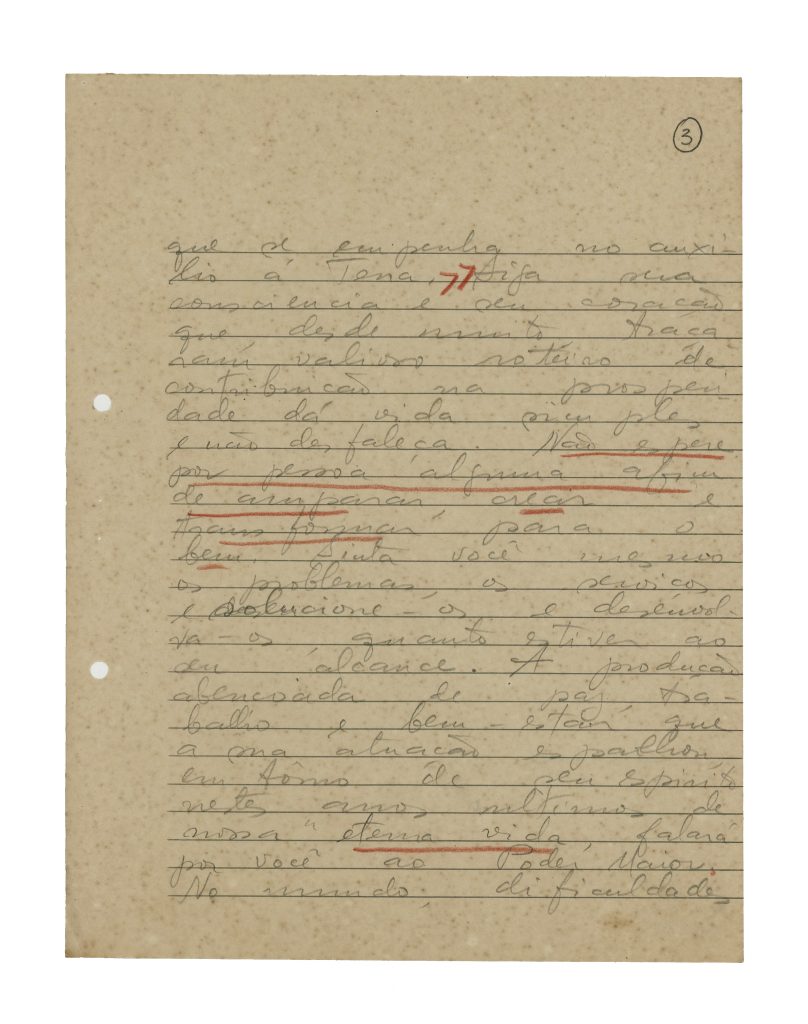 3
que se empenha no auxi-
lio á Terra. Siga sua
consciencia e seu coração
que desde muito traça
ram valioso roteiro de
contribuição na prosperi-
dade dá vida simples
e não desfaleça. Não espere
por pessoa alguma afim
de amparar, crear e
transformar para o
bem. Sinta você mesmo
os problemas, os serviços
e solucione-os e desenvol-
va-os quanto estiver ao
seu alcance. A produção
abençoada de paz, tra-
balho e bem-estar, que
a sua atuação espalhou,
em tôrno de seu espirito
nestes anos ultimos de
nossa "eterna vida, falará
por você ao Poder Maior.
No mundo, dificuldades